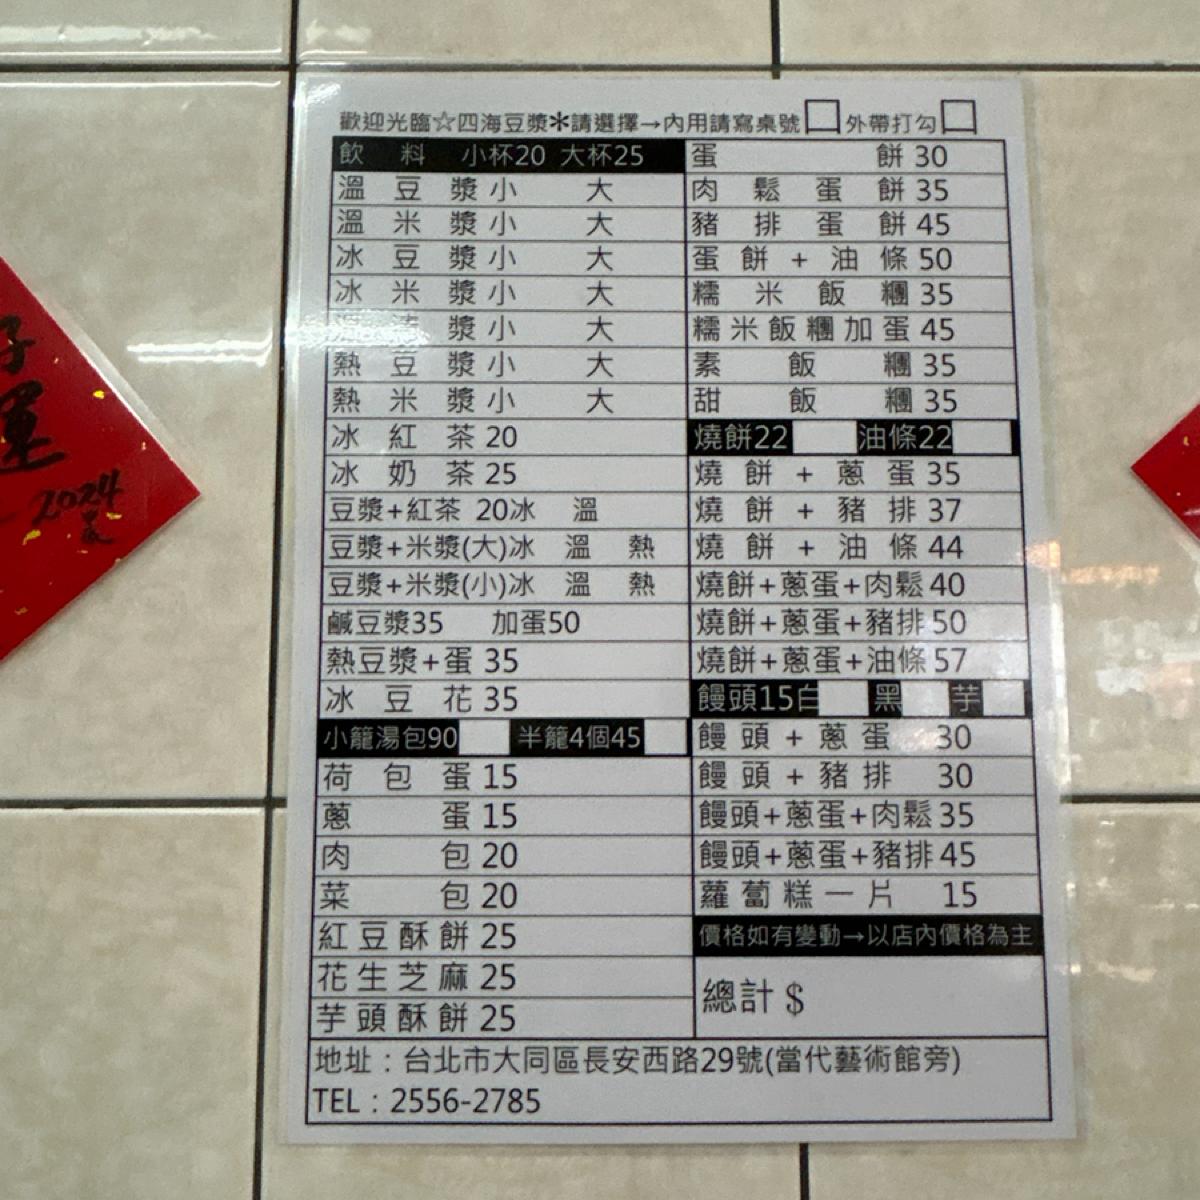 歡迎光臨☆四海豆漿＊請選擇→內用請寫桌號□外帶打勾□
飲料 小杯20 大杯25
溫豆漿小 大
溫米漿小 大
冰豆漿小 大
冰米漿小 大
漿小 大
熱豆漿小 大
熱米漿小 大
冰紅茶20
冰奶茶25
豆漿+紅茶 20冰 溫
豆漿+米漿(大)冰 溫 熱
豆漿+米漿(小)冰 溫 熱
鹹豆漿35 加蛋50
熱豆漿+蛋 35
冰豆花35
小籠湯包90 半籠4個45
荷包蛋15
蔥蛋15
肉包20
菜包20
紅豆酥餅25
花生芝麻25
芋頭酥餅25
蛋餅30
肉鬆蛋餅35
豬排蛋餅45
蛋餅+油條50
糯米飯糰35
糯米飯糰加蛋45
素飯糰35
甜飯糰35
燒餅22 油條22
燒餅+蔥蛋35
燒餅+豬排37
燒餅+油條44
燒餅+蔥蛋+肉鬆40
燒餅+蔥蛋+豬排50
燒餅+蔥蛋+油條57
饅頭15白 黑 芋
饅頭+蔥蛋 30
饅頭+豬排 30
饅頭+蔥蛋+肉鬆35
饅頭+蔥蛋+豬排45
蘿蔔糕一片 15
價格如有變動→以店內價格為主
總計 $
地址：台北市大同區長安西路29號(當代藝術館旁)
TEL：2556-2785
運
2024